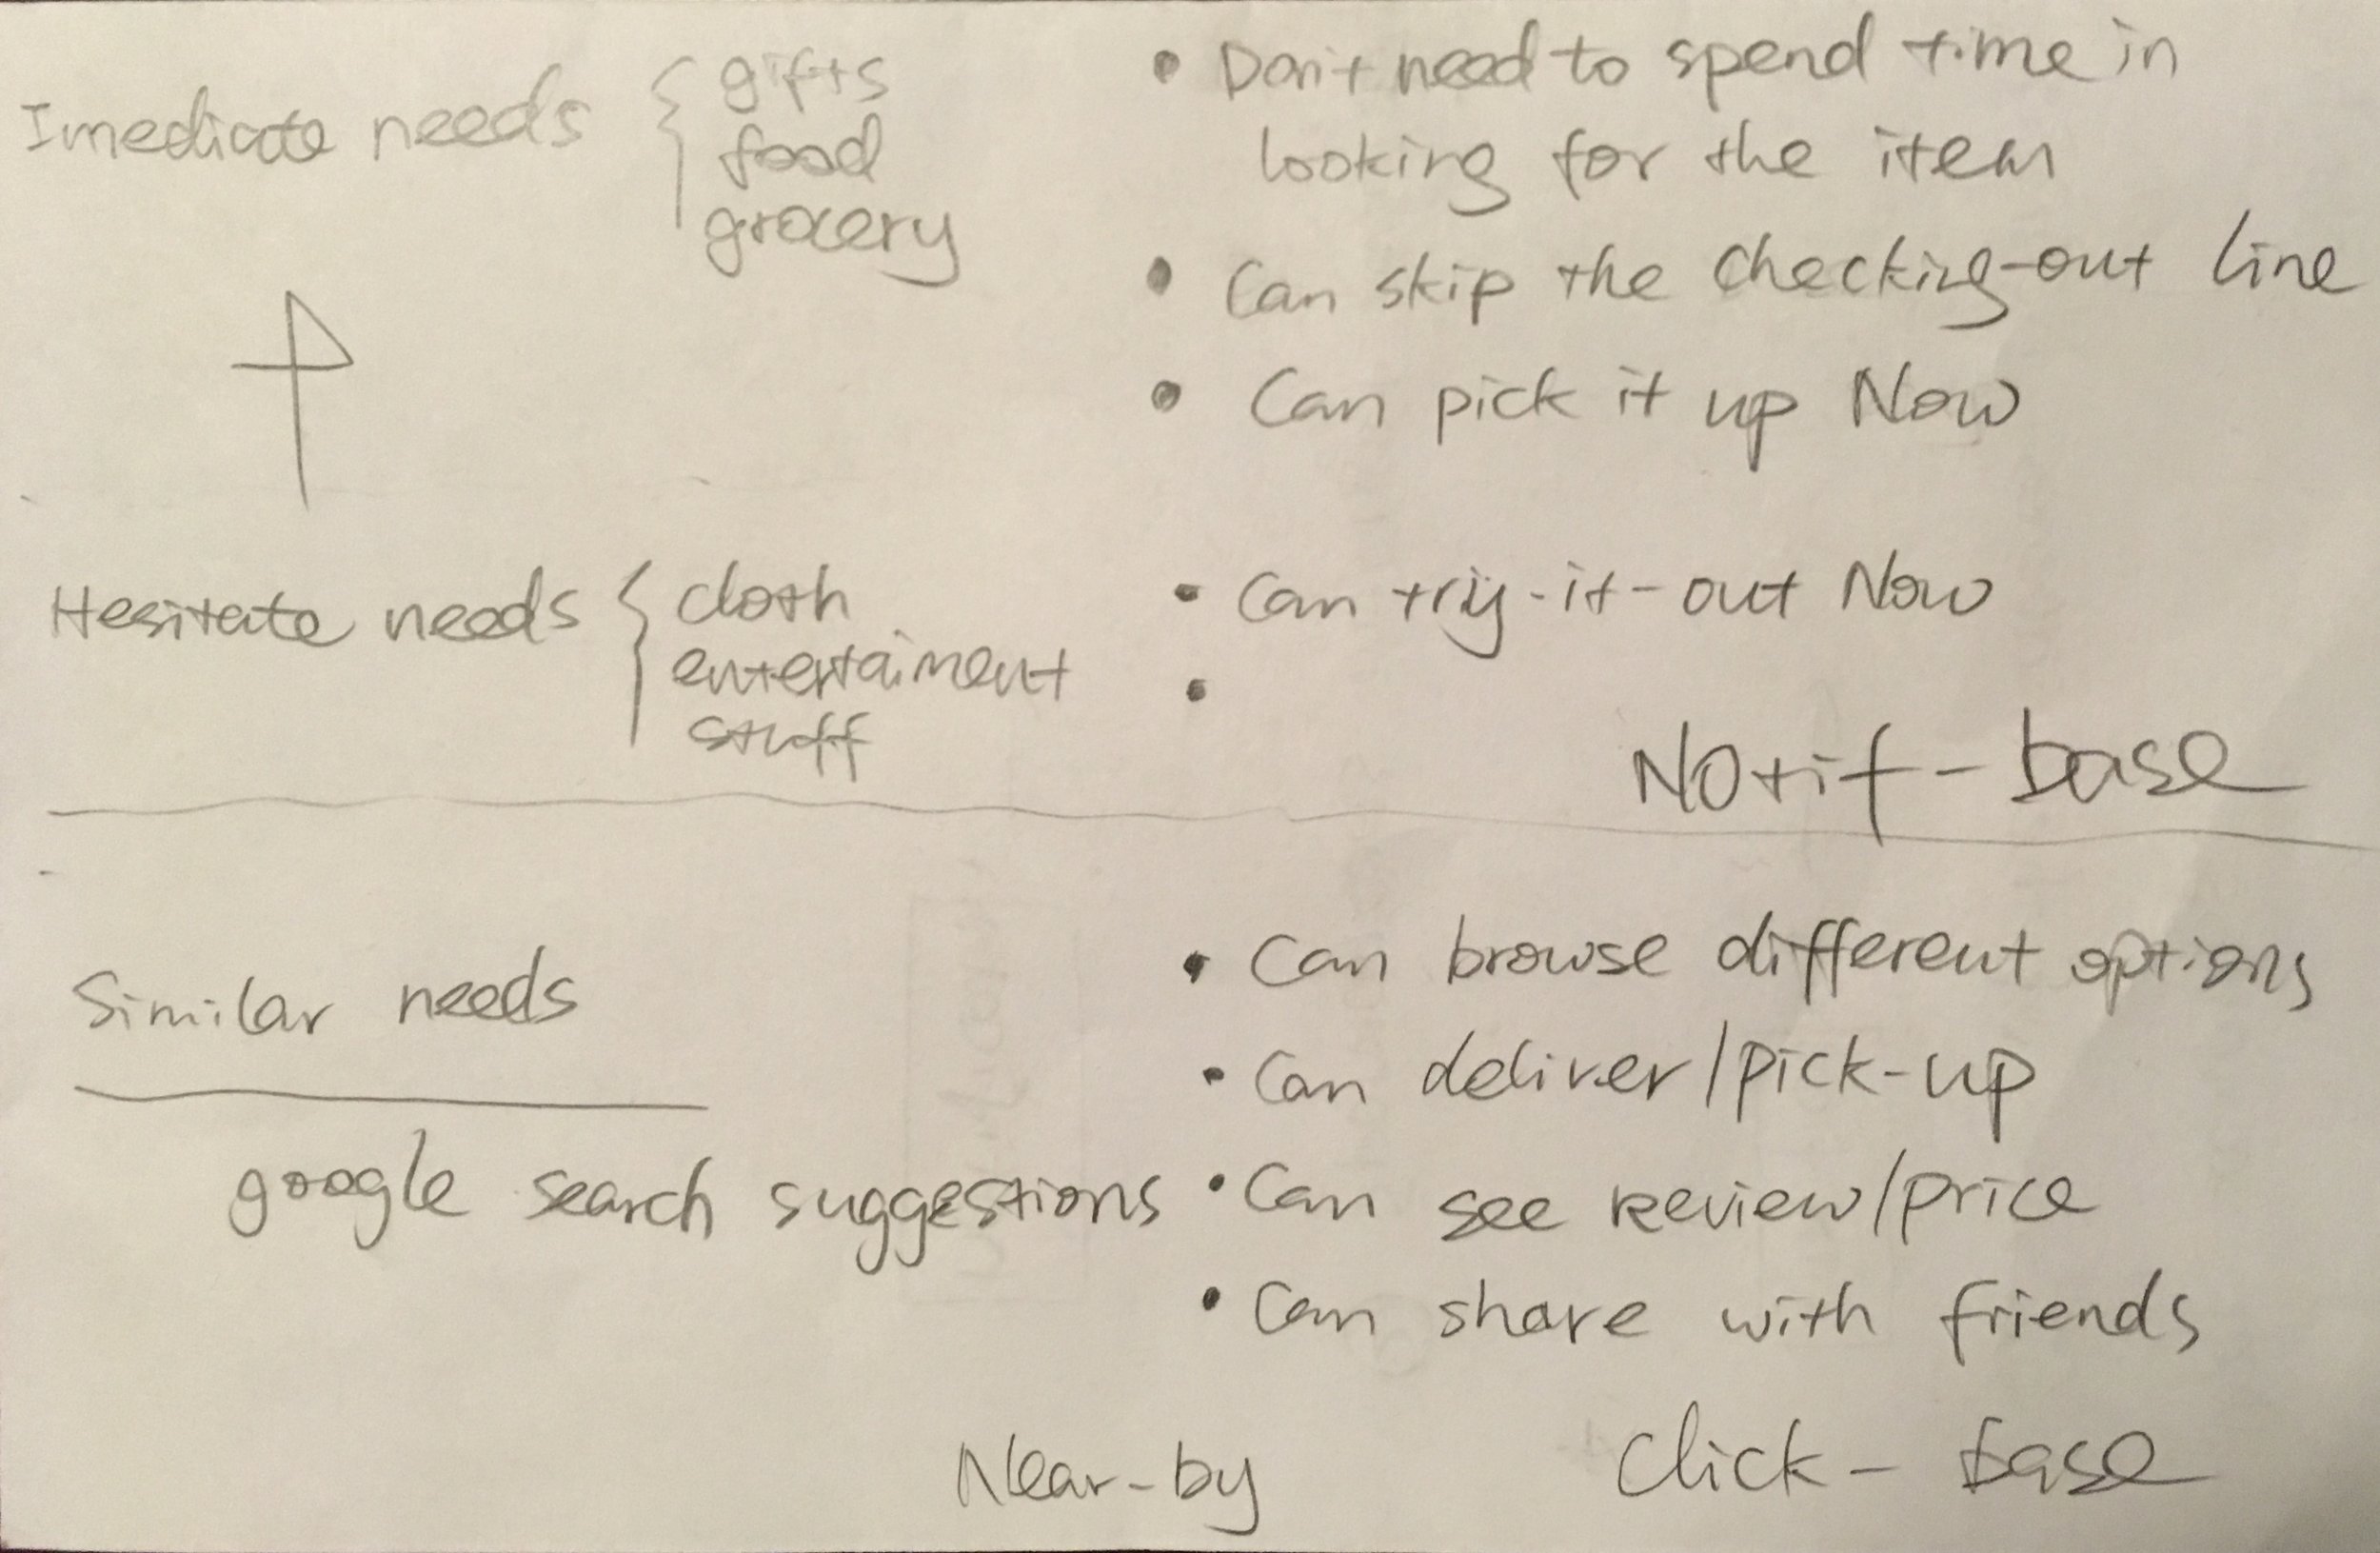 Imediate needs
gifts
food
grocery
• Don't need to spend time in
looking for the item
• Can skip the checking-out line
• Can pick it up Now
Hesitate needs
cloth
entertaiment
stuff
• Can try-it-out Now
•
Notif-base
Similar needs
google search suggestions
• Can browse different options
• Can deliver/pick-up
• Can see review/price
• Can share with friends
Near-by
Click-base